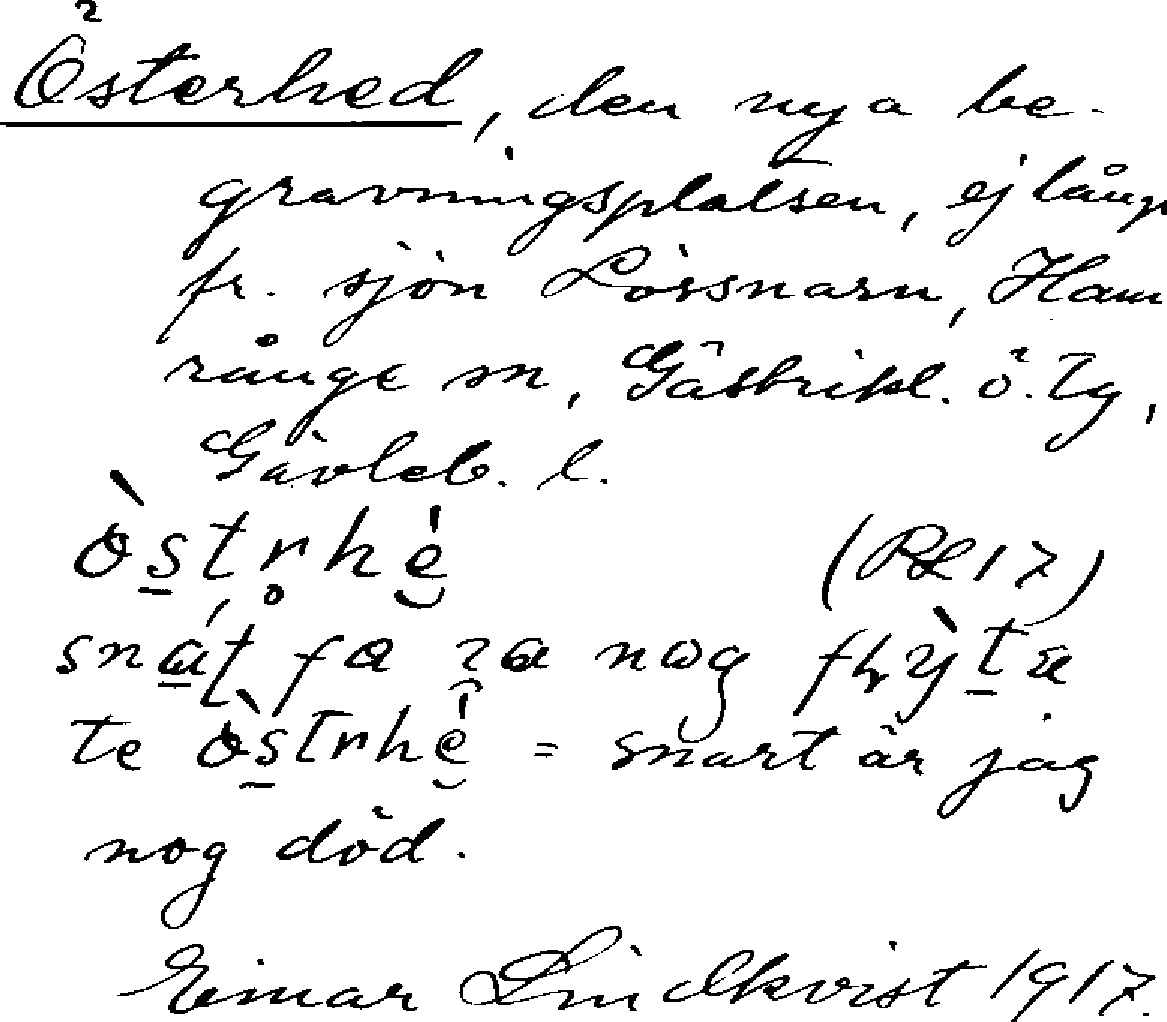 Österhed, den nya be-
gravningsplatsen, ej långt
fr. sjön Lössnarn, Ham
rånge sn, Gästrikl. ö. tg,
Gävleb. l.
òstr̥hé (RL17)
snát fa ɿa nog flýta
te òstrhé = snart är jag
nog död.
Einar Lindkvist 1917.